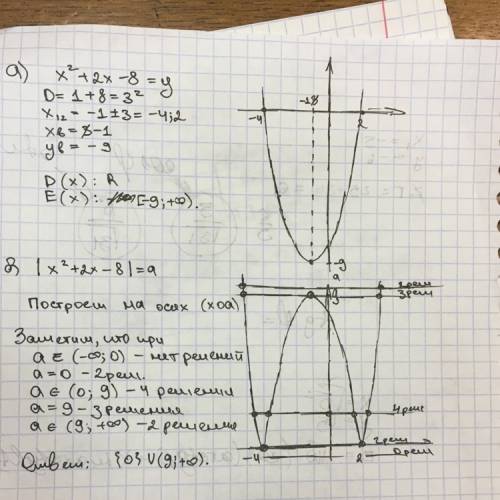 а)
x² + 2x - 8 = y
D = 1 + 8 = 3²
x₁₂ = -1 ± 3 = -4; 2
xв = -1
yв = -9
D(x): R
E(x): [-9; +∞).
-4
-1
2
-9
б) |x² + 2x - 8| = a
Построем на осях (xoa)
Заметим, что при
a ∈ (-∞; 0) - нет решений
a = 0 - 2 реш.
a ∈ (0; 9) - 4 решения
a = 9 - 3 решения
a ∈ (9; +∞) - 2 решения
Ответ: {0} ∪ (9; +∞).
a
2 реш
9
3 реш
4 реш
2 реш
-4
2
0 реш